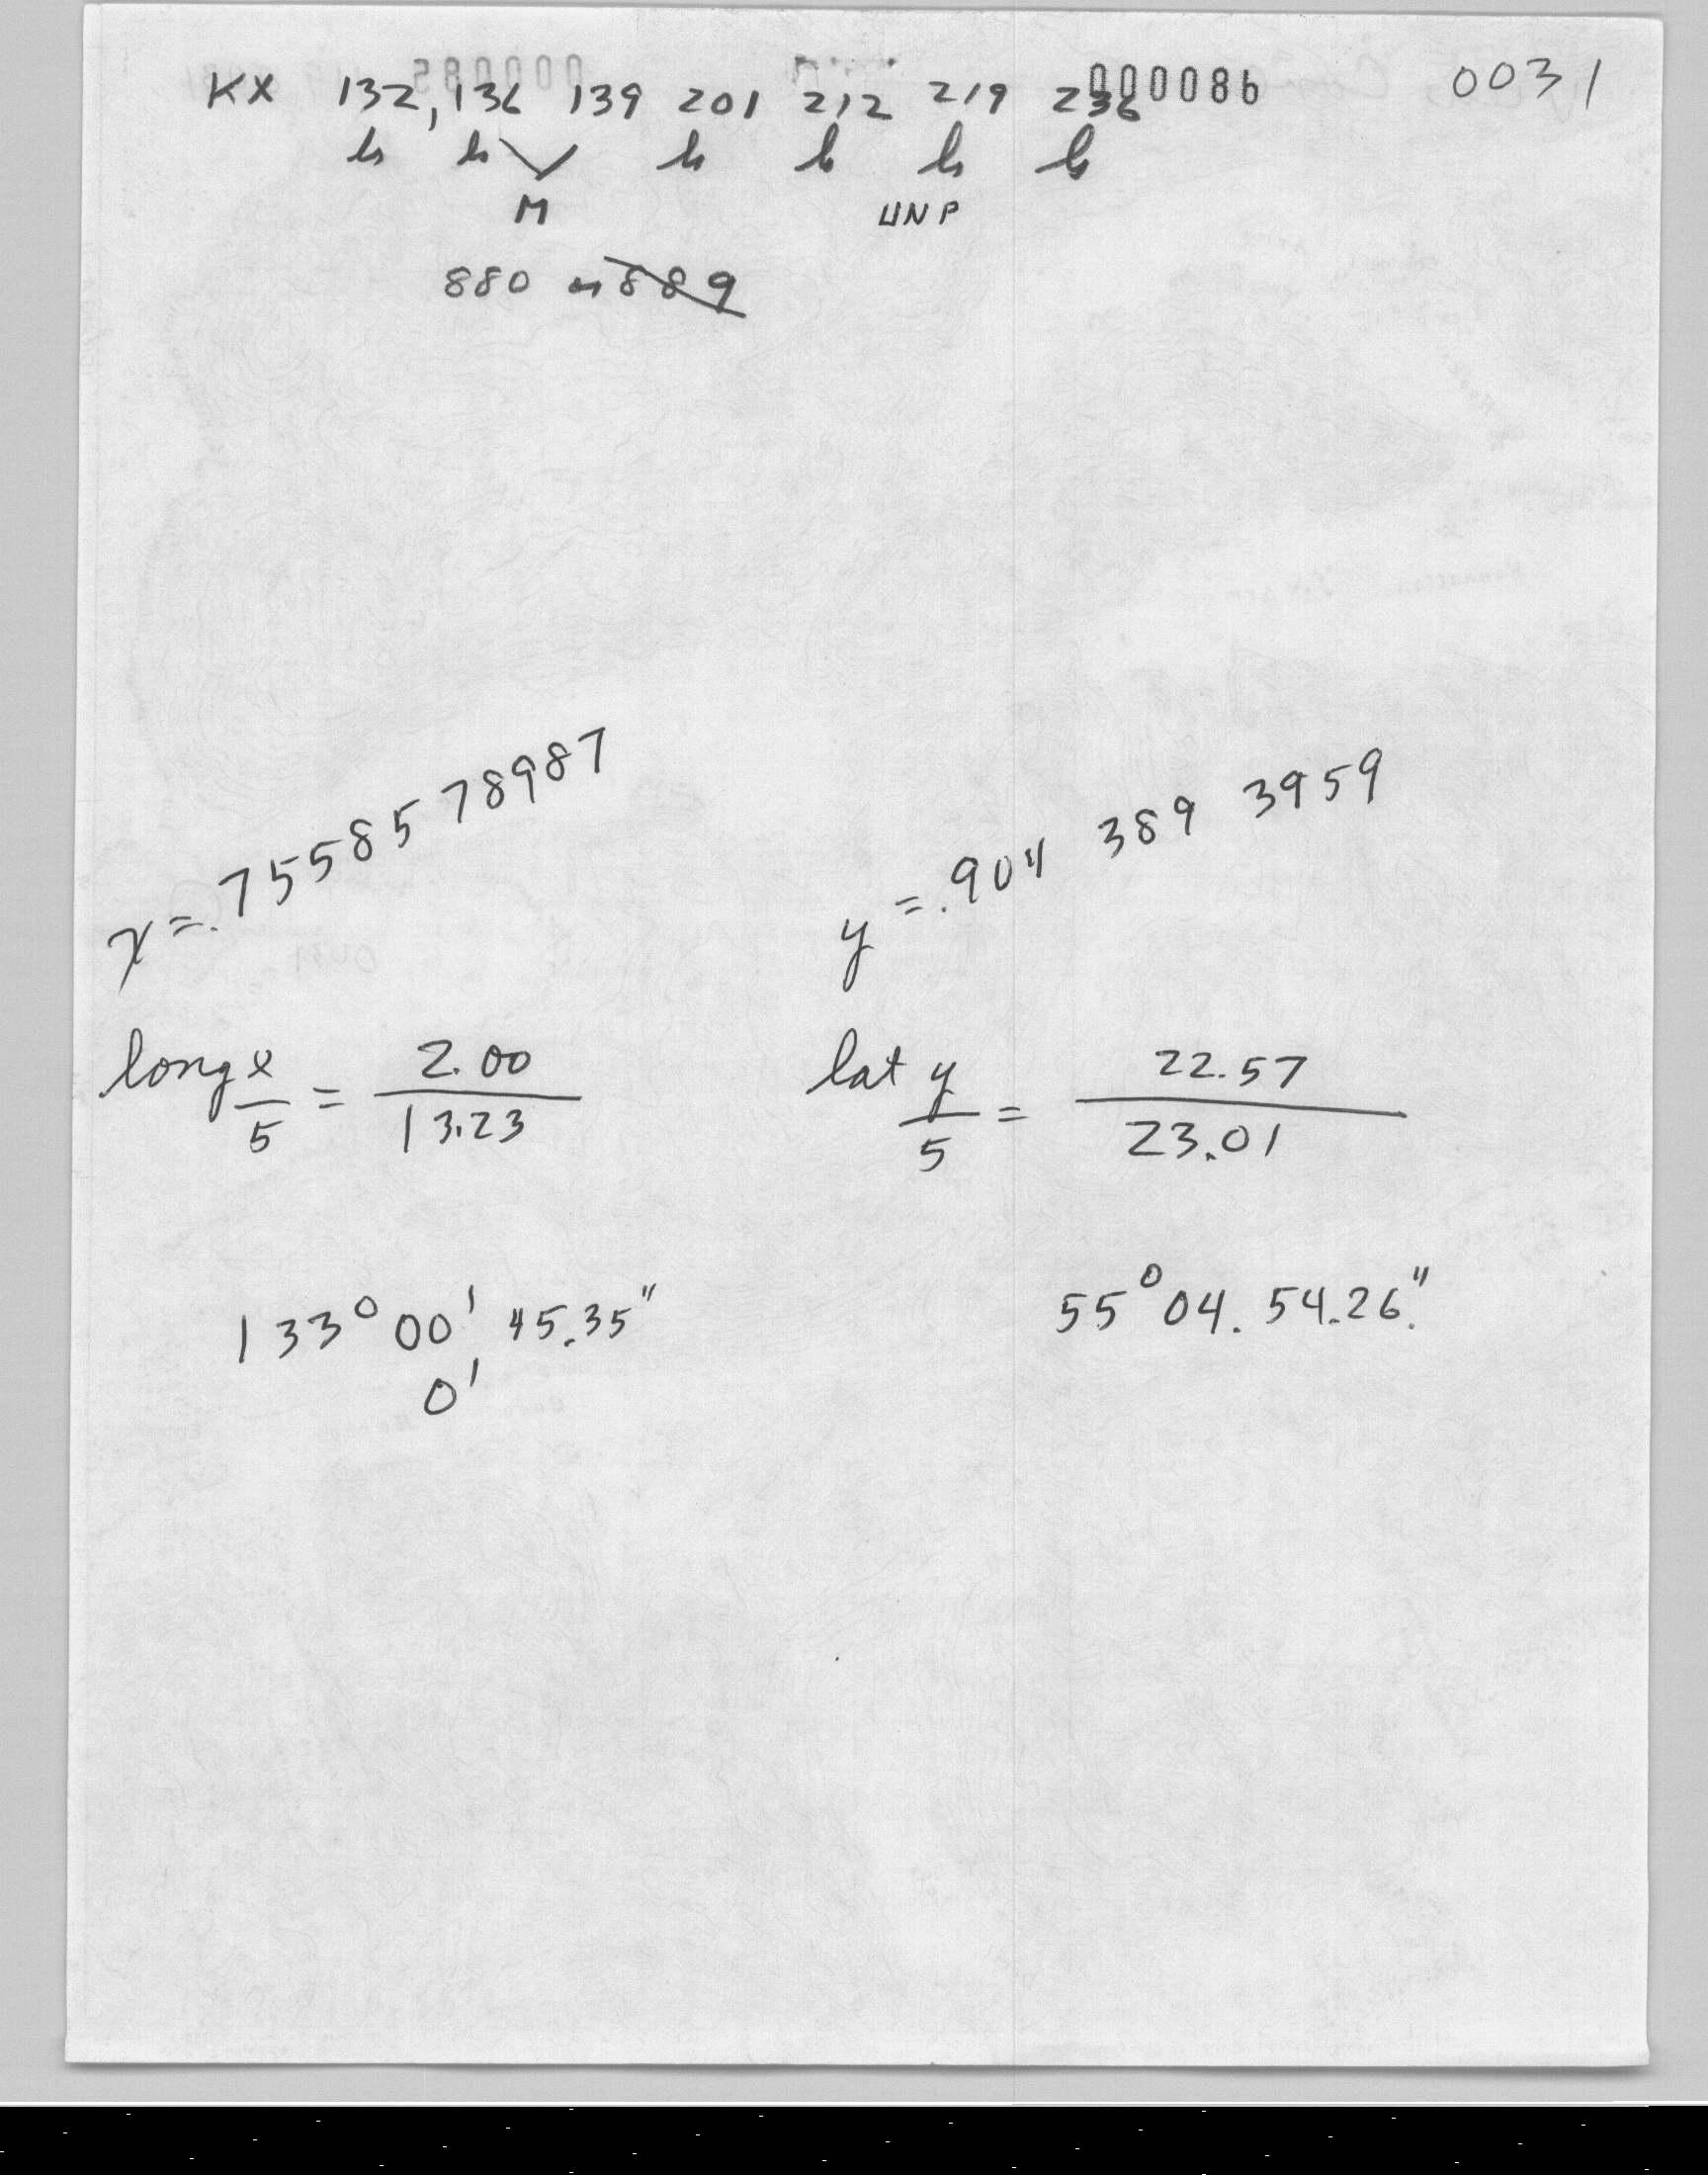 KX 132, 136 139 201 212 219 236 000086 0031
h h h h h h
M UNP
880 or 889
x = .75585 78987
y = .904 389 3959
long x/5 = 2.00/13.23
lat y/5 = 22.57/23.01
133° 00' 45.35"
0'
55° 04. 54.26."